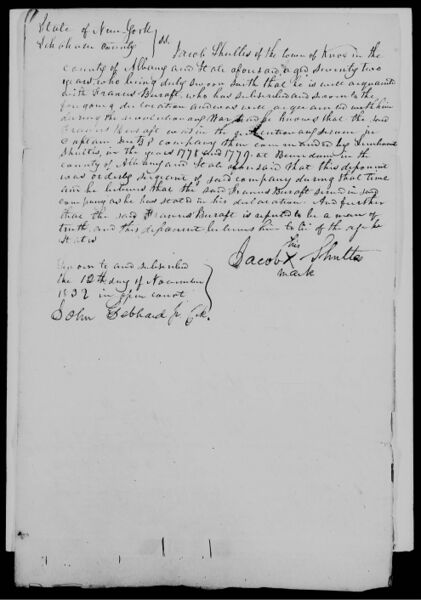 State of New-York
Schoharie County } SS.
Jacob Shultes of the town of Knox in the
county of Albany and State aforesaid, aged seventy two
years, who being duly sworn saith that he is well acquainted
with Francis Bucraft who has subscribed and sworn to the
foregoing declaration and was well acquainted with him
during the revolutionary War, he knows that the said
Francis
Captain company then commanded by
Shultes, in the years 1778 and 1779 at in the
county of Albany and State aforesaid that this deponent
was orderly sergeant of said company during that time
and he believes that the said Francis Bucraft served in said
company as he has stated in his declaration. And further
that the said Francis Bucraft is reputed to be a man of
truth, and this deponent believes him to be of the age he
states
Sworn to and subscribed
the 12th day of November
1832 in open court
his
Jacob X Shultes
mark
John Gebhard Jr Clk.